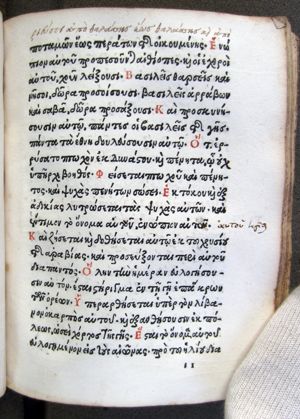 ριεύσει ἀπὸ θαλάσσης ἕως θαλάσσης κ ἀπὸ
ποταμῶν ἕως περάτων τῆς οἰκουμένης. Ἐνώ
πιον αὐτοῦ προπεσοῦνται αἰθίοπες, κ οἱ ἐχθροὶ
αὐτοῦ, χοῦν λείξουσι. Βασιλεῖς θαρσεῖς καὶ
νῆσοι, δῶρα προσοίσουσι. βασιλεῖς ἀρράβων
καὶ σαβᾶ, δῶρα προσάξουσι. Καὶ προσκυνή
σουσιν αὐτῷ, πάντες οἱ βασιλεῖς τῆς γῆς.
πάντα τὰ ἔθνη δουλεύσουσιν αὐτῷ. Ὅτι ἐρ
ρύσατο πτωχὸν ἐκ δυνάστου. κ πένητα, ᾧ οὐχ
ὑπῆρχε βοηθός. Φείσεται πτωχοῦ καὶ πένη
τος. καὶ ψυχὰς πενήτων σώσει. Ἐκ τόκου κ ἐξ
ἀδικίας λυτρώσεται τὰς ψυχὰς αὐτῶν. καὶ
ἔντιμον τὸ ὄνομα αὐτοῦ, ἐνώπιον αὐτῶν. αὐτοῦ
Καὶ ζήσεται κ δοθήσεται αὐτῷ ἐκ τοῦ χρυσίου
τῆς ἀραβίας. καὶ προσεύξονται περὶ αὐτοῦ
διαπαντός. Ὅλην τὴν ἡμέραν εὐλογήσου
σιν αὐτόν. ἔσται στήριγμα ἐν τῇ γῇ ἐπ' ἄκρων
τῶν ὀρέων. Ὑπεραρθήσεται ὑπὲρ τὸν λίβα
νον ὁ καρπὸς αὐτοῦ. κ ἐξανθήσουσιν ἐκ πό
λεως, ὡσεὶ χόρτος τῆς γῆς. Ἔσται τὸ ὄνομα αὐτοῦ
εὐλογημένον εἰς τοὺς αἰῶνας, πρὸ τοῦ ἡλίου δια